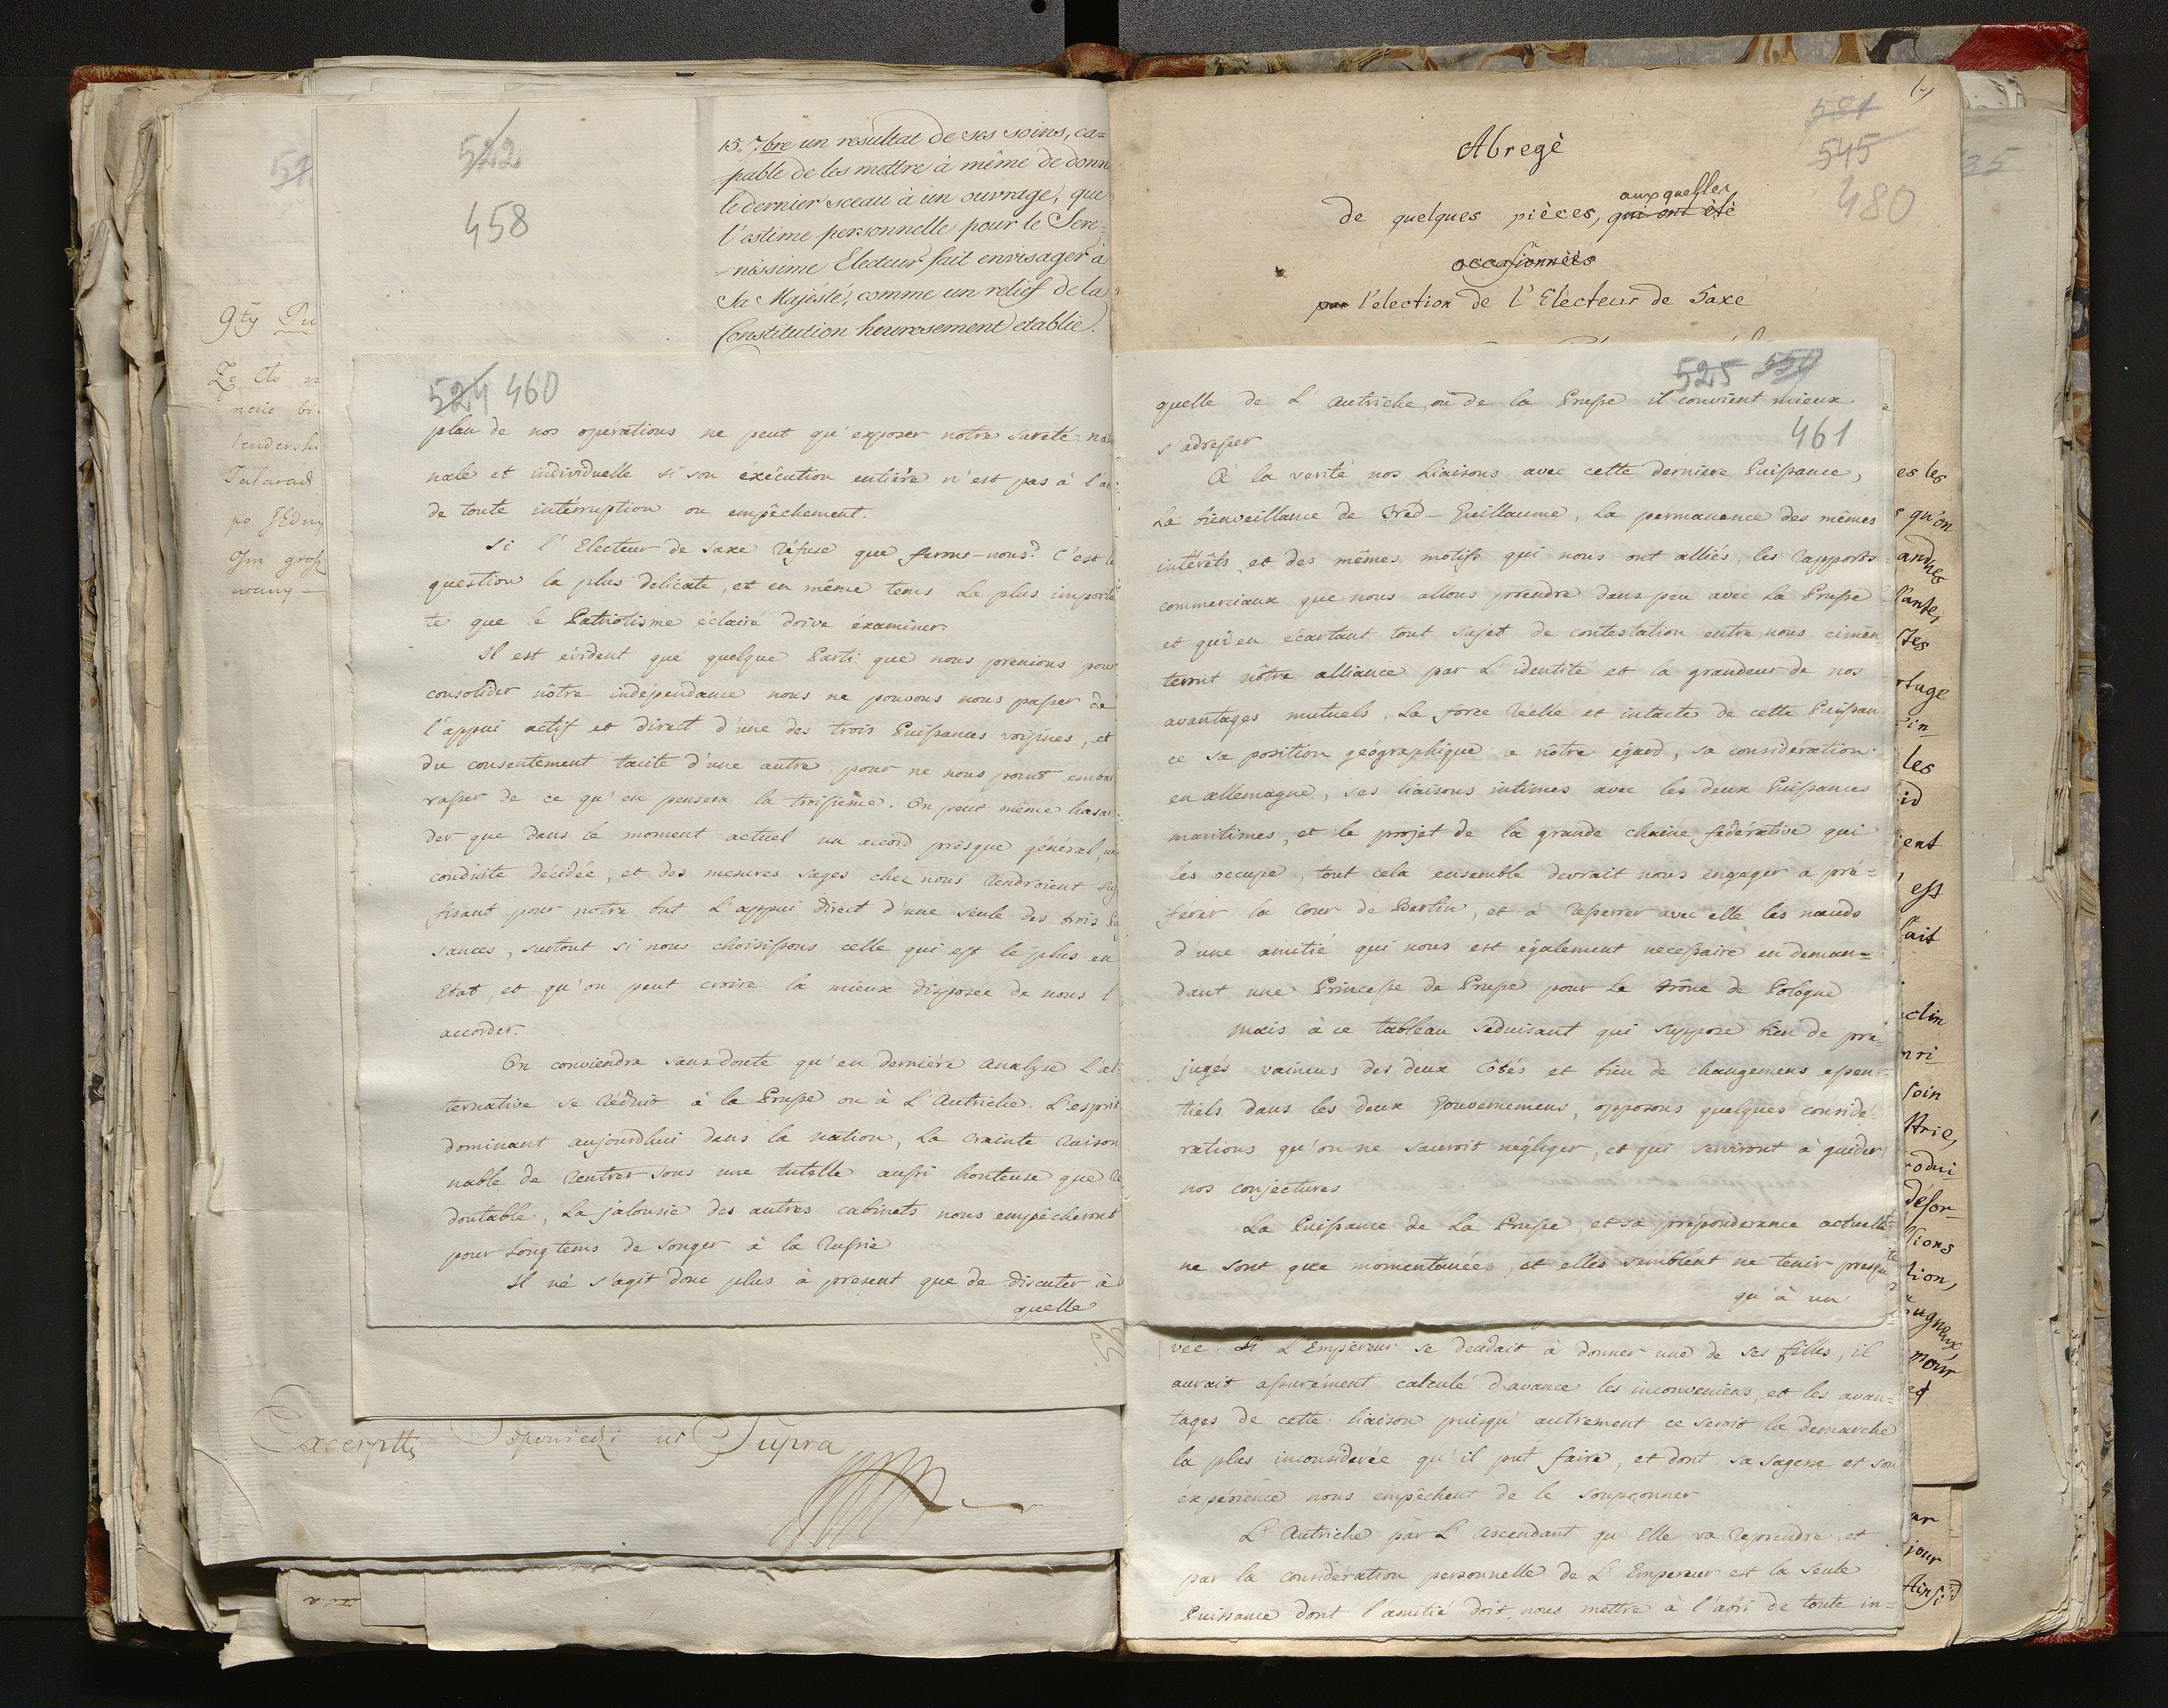 522
458
15. 7bre un resultat de ses soins, ca=
pable de les mettre à même de donn
le dernier sceau à un ouvrage, que
l'estime personnelle pour le Sere=
nissime Electeur fait envisager à
Sa Majésté, comme un relief de la
Constitution heureusement etablie.
524 460
plan de nos opérations ne peut qu'exposer notre sureté na
nale et individuelle si son éxécution entiére n'est pas à l'a
de toute intérruption ou empêchement.
Si l'Electeur de Saxe réfuse que ferons-nous? C'est l
question la plus delicate, et en même tems la plus import
te que le Patriotisme éclairé doive examiner.
Il est évident que quelque Parti que nous prenions pour
consolider nôtre indépendance nous ne pouvons nous passer de
l'appui actif et direct d'une des trois Puissances voisines, et
du consentement tacite d'une autre, pour ne nous point emba
rasser de ce qu'en pensera la troisiéme. On peut même hasar
der que dans le moment actuel un accord présque général, un
conduite décidée, et des mesures sages chez nous rendroient suf
fisant pour notre but l'appui direct d'une seule des trois Pu
sances, surtout si nous choisissons celle qui est le plus en
Etat, et qu'on peut croire la mieux disposée de nous l
accorder.
On conviendra sans doute qu'en derniére analyse l'al=
ternative se réduit à la Prusse ou à L'Autriche. L'esprit
dominant aujourdhui dans la nation, la crainte raison
nable de rentrer sous une tutelle aussi honteuse que re
doutable, la jalousie des autres cabinets nous empécheront
pour longtems de songer à la Russie
Il né s'agit donc plus à present que de discuter à
quelle
Excerptt Odpowiedzi ut Supra
(1)
551
545
480
Abregè
de quelques pièces, qui ont èté
auxquelles
occasionnèes
par l'election de l'Electeur de Saxe
525 559
461
quelle de L'Autriche, où de la Prusse il convient mieux
s'adresser
A la verité nos liaisons avec cette derniere Puissance,
la bienveillance de Fréd-Guillaume, la permanence des mêmes
intérêts et des mêmes motifs qui nous ont alliés, les rapports
commerciaux que nous allons prendre dans peu avec la Prusse
et qui en écartant tout sujet de contestation entre nous cimen=
teront nôtre alliance par L'identité et la grandeur de nos
avantages mutuels, la force réelle et intacte de cette Puissan
ce sa position géographique a nôtre égard, sa considération
en allemagne, ses liaisons intimes avec les deux Puissances
maritimes, et le projet de la grande chaine fédérative qui
les occupe, tout cela ensemble devrait nous engager a pré=
férer la Cour de Berlin, et à resserrer avec elle les nœuds
d'une amitié qui nous est également necessaire en deman=
dant une Princesse de Prusse pour le trône de Pologne
Mais à ce tableau séduisant qui suppose bien de pré=
jugés vaincus des deux Côtés et bien de changemens essen=
tiels dans les deux Gouvernemens, opposons quelques conside=
rations qu'on ne sauroit négliger, et qui serviront à guider
nos conjectures
La Puissance de La Prusse et sa préponderance actuelle
ne sont que momentanées, et elles semblent ne tenir presqu
qu'à un
vée. Si L'Empereur se decidait à donner une de ses filles, il
aurait assurément calculé d'avance les inconveniens, et les avan=
tages de cette liaison puisqu'autrement ce seroit la demarche
la plus inconsiderée qu'il put faire, et dont sa sagesse et son
éxpérience nous empêchent de le soupçonner
L'Autriche par L'ascendant qu'Elle va reprendre, et
par la considération personnelle de L'Empereur est la seule
Puissance dont l'amitié doit nous mettre à l'abri de toute in=